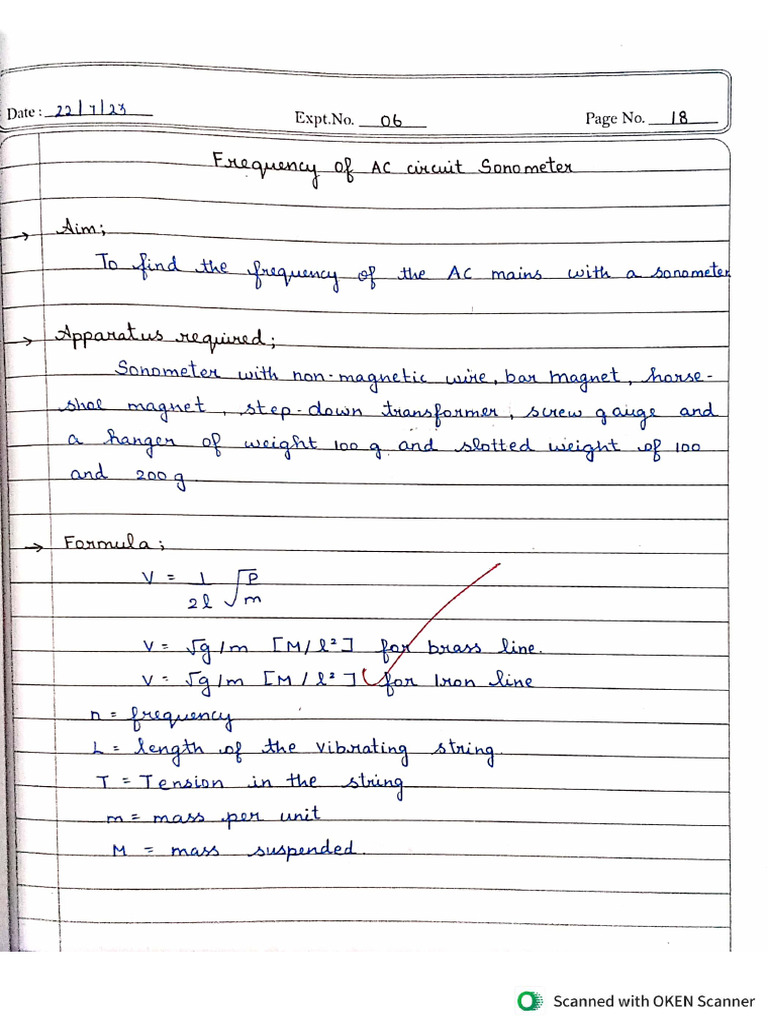 Date : 22/7/23 Expt.No. 06 Page No. 18
Frequency of AC circuit Sonometer
→ Aim;
To find the frequency of the AC mains with a sonometer
→ Apparatus required;
Sonometer with non-magnetic wire, bar magnet, horse-
shoe magnet, step-down transformer, screw gauge and
a hanger of weight 100 g and slotted weight of 100
and 200 g
→ Formula;
V = 1/2l √P/m
V = √g/m [M/l²] for brass line.
V = √g/m [M/l²] for Iron line
n = frequency
L = length of the vibrating string.
T = Tension in the string
m = mass per unit
M = mass suspended.
Scanned with OKEN Scanner